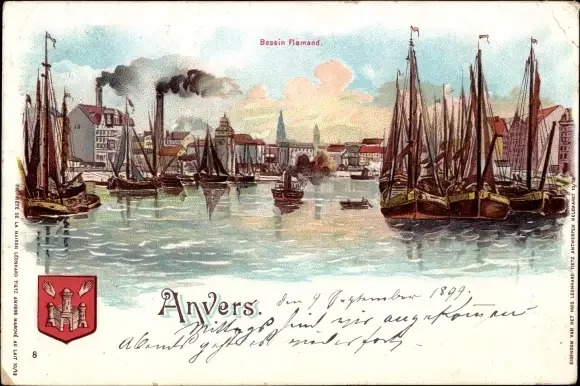 Bassin Flamand.
PROPRIÉTÉ DE LA MAISON LÉONHARD TIETZ ANVERS MARCHÉ AU LAIT 10/12
EIGENDOM VAN HET HUIS LEONHARD TIETZ ANTWERPEN MELKMARKT 10/12
8
Anvers.
den 9 September 1899.
Mittags sind wir angekommen
Abends geht es wieder fort.